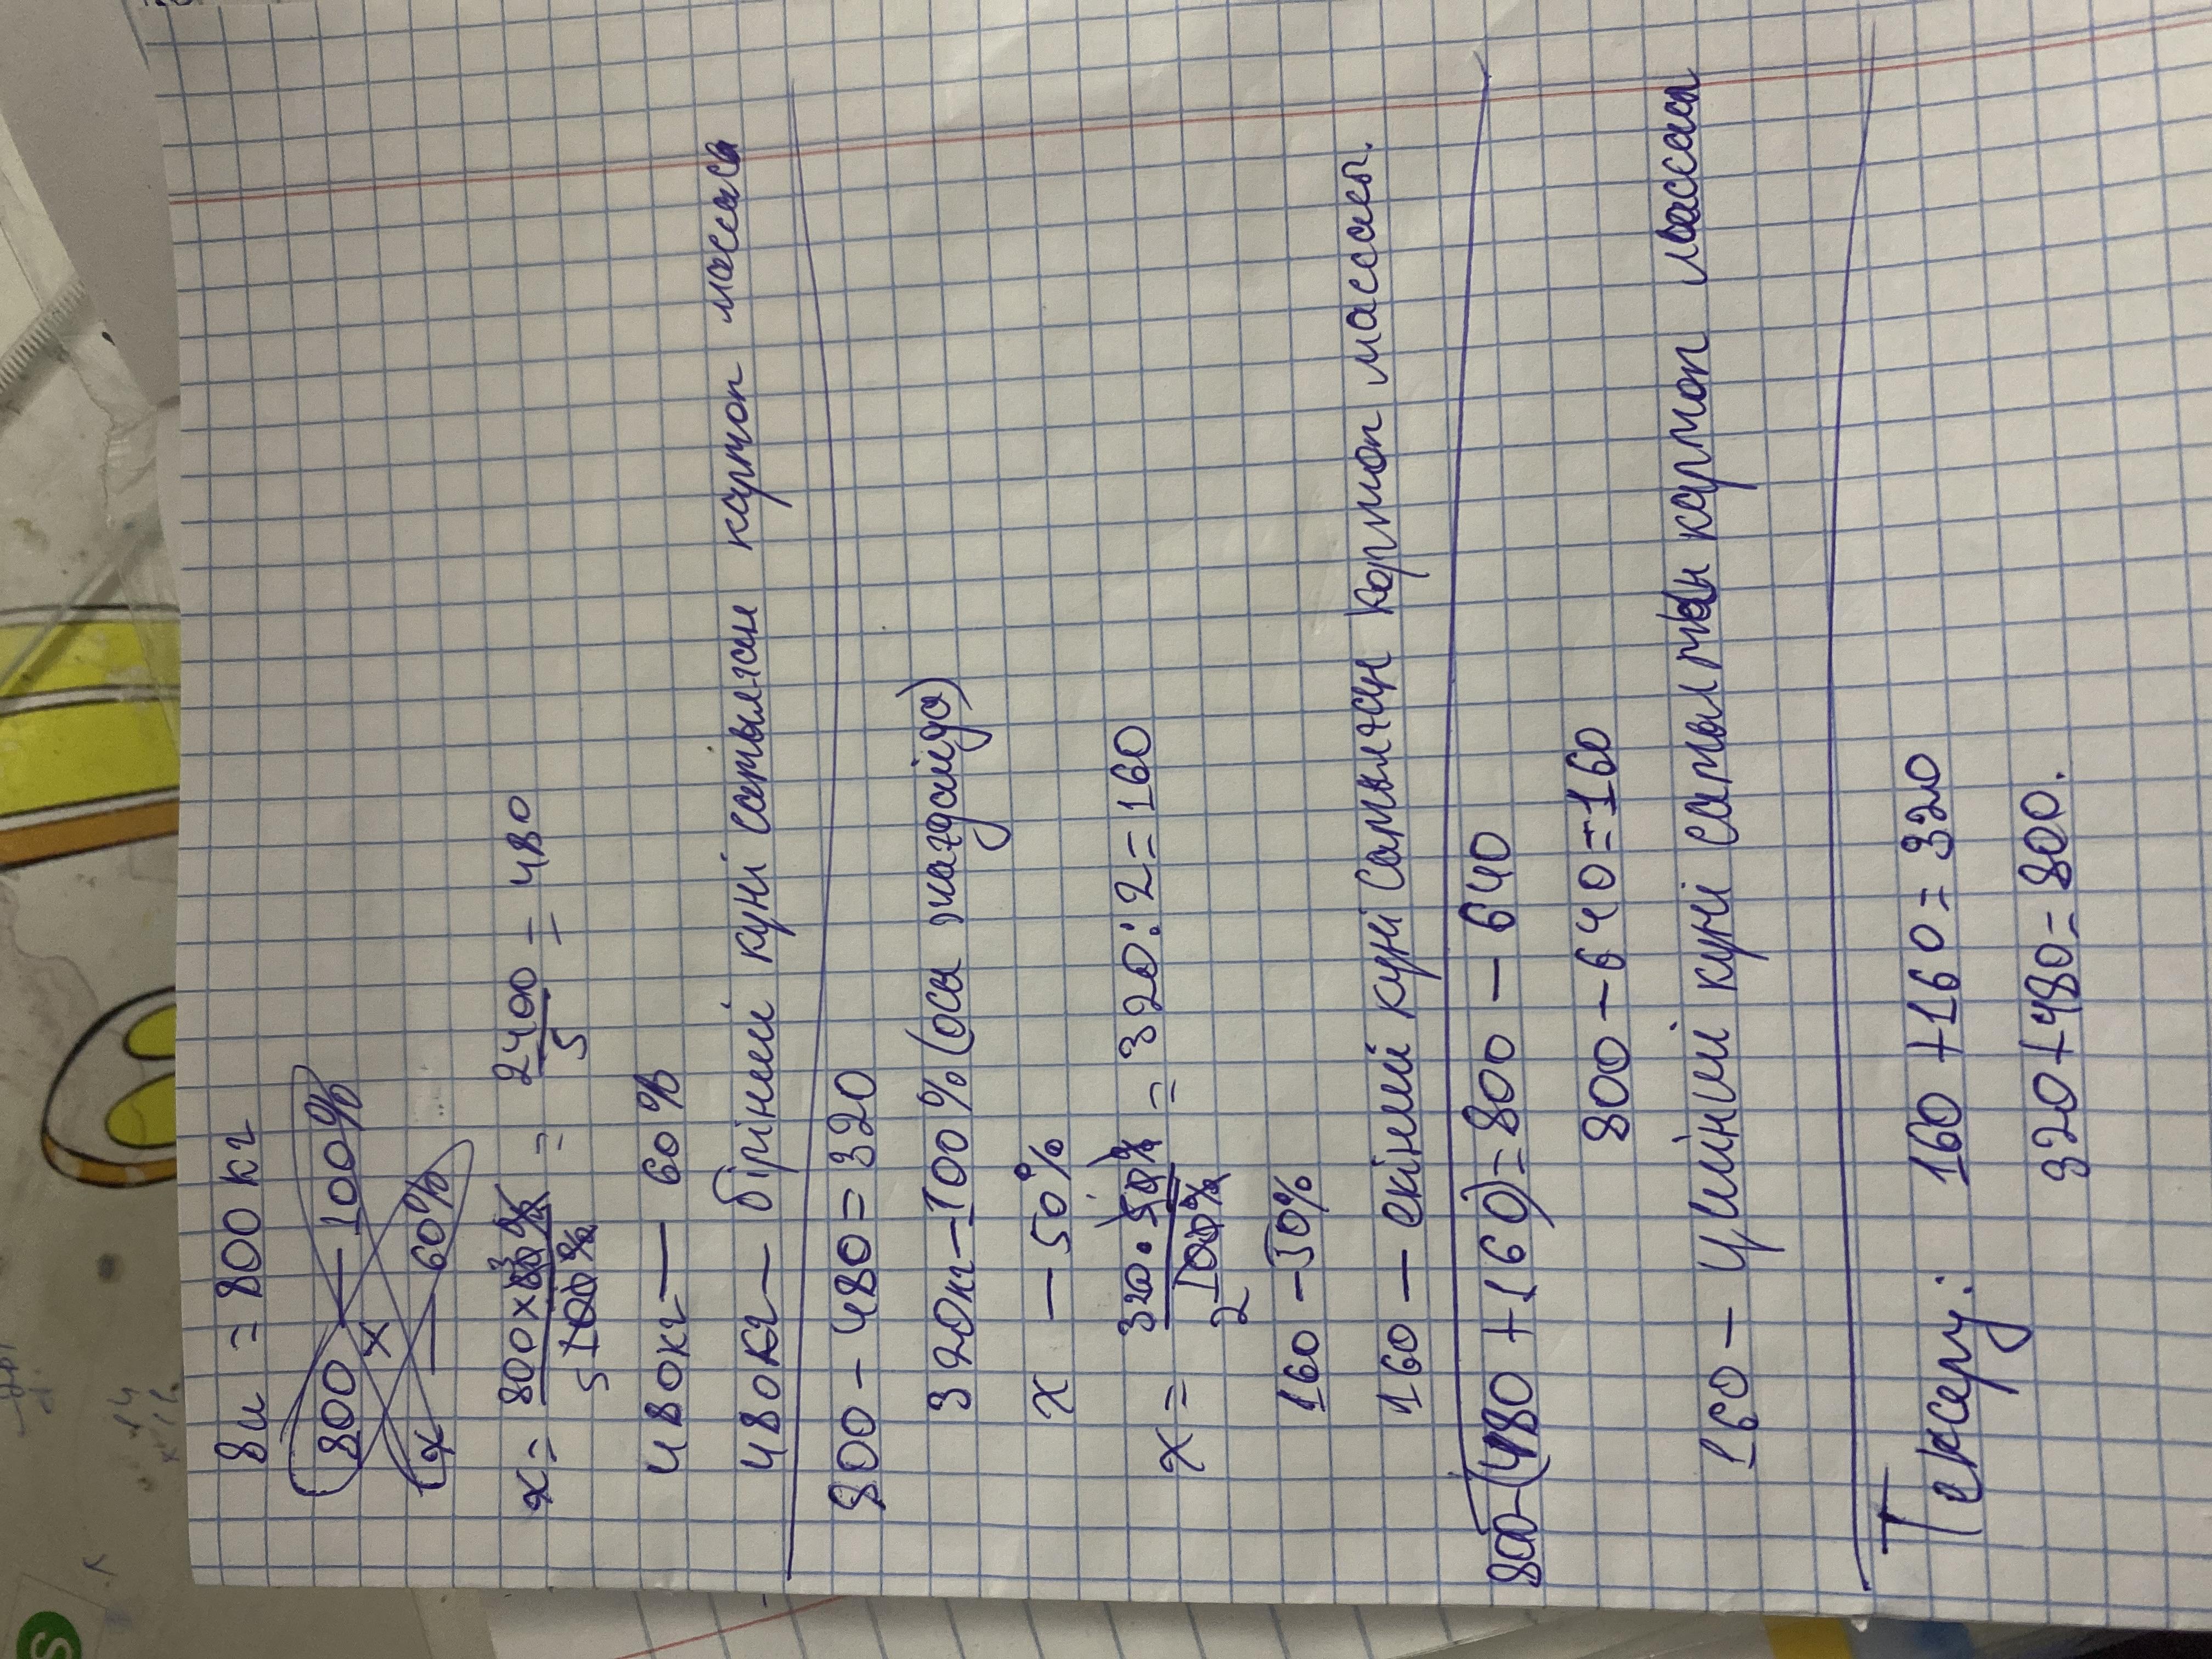 8ц = 800 кг
800 — 100%
х
х — 60%
х = 800 × 60% / 5 100% = 2400 / 5 = 480
480кг — 60%
480кг — бірінші күні сатылған картоп массасы
800 - 480 = 320
320кг - 100% (осы жағдайда)
х — 50%
х = 320 · 50% / 2 100% = 320 : 2 = 160
160 - 50%
160 — екінші күні сатылған картоп массасы.
800 - (480 + 160) = 800 - 640
800 - 640 = 160
160 — үшінші күні сатылған картоп массасы
Тексеру: 160 + 160 = 320
320 + 480 = 800.